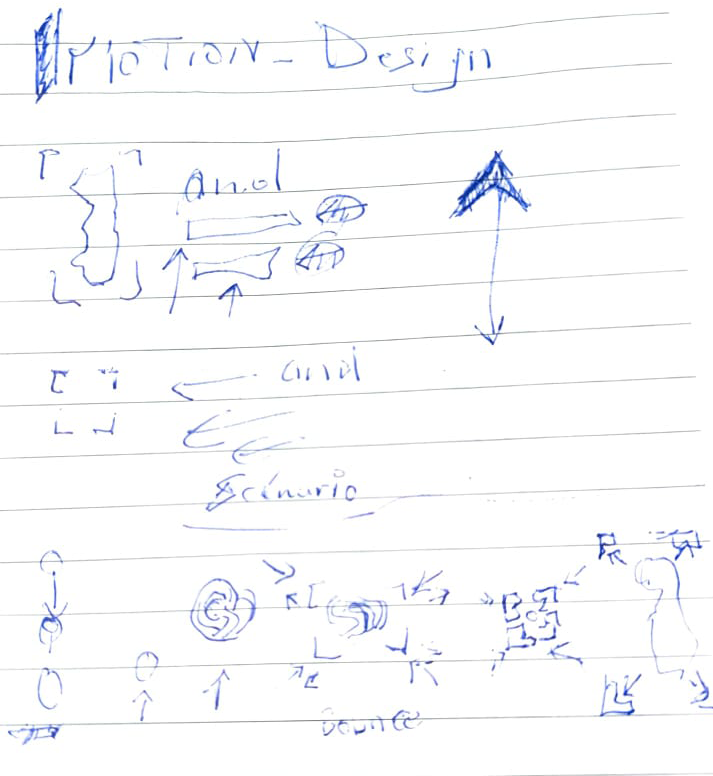 MOTION - Design
and
and
Scénario
Bounce